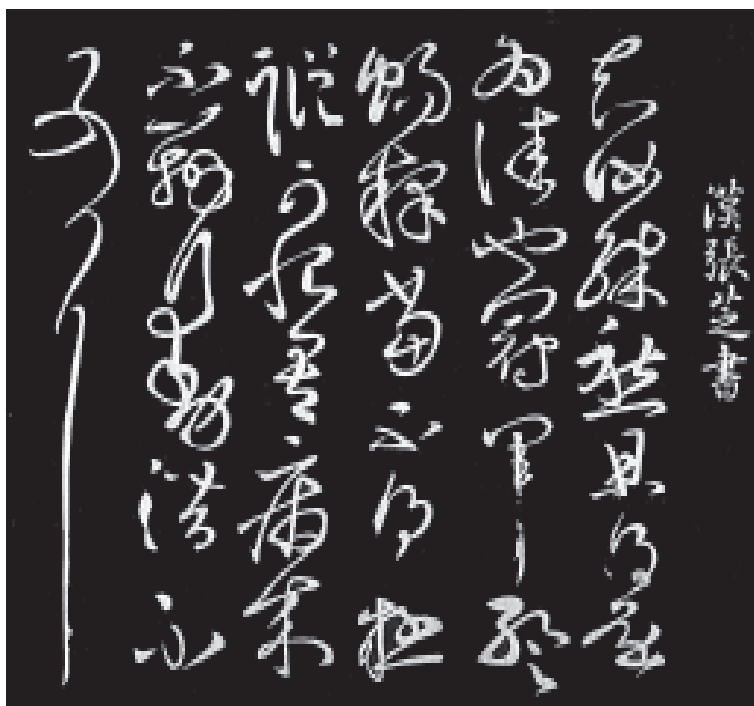 漢張芝書
知汝殊愁且得還
為佳也冠軍暫
暢釋當不得極
蹤可恨吾病來
不辦行動潛不
可耳